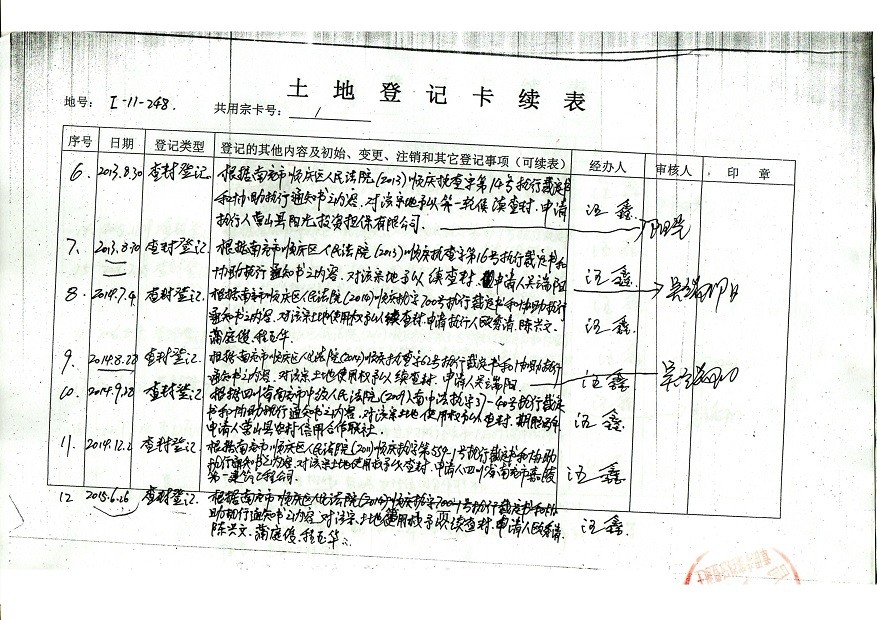 土地登记卡续表
地号： I-11-248. 共用宗卡号： /
序号 日期 登记类型 登记的其他内容及初始、变更、注销和其它登记事项（可续表） 经办人 审核人 印章
6. 2013.8.30 查封登记. 根据南充市顺庆区人民法院(2013)顺庆执查字第14号执行裁定书
和协助执行通知书之内容. 对该宗地予以第一轮候续查封. 申请 汪鑫.
执行人营山县阳光投资担保有限公司.
7. 2013.8.30 查封登记. 根据南充市顺庆区人民法院(2013)顺庆执查字第16号执行裁定书和
协助执行通知书之内容. 对该宗地予以续查封. 申请人吴瑞阳 汪鑫.
8. 2014.7.4. 查封登记. 根据南充市顺庆区人民法院(2014)顺庆执字700号执行裁定书和协助执行
通知书之内容. 对该宗土地使用权予以续查封. 申请执行人 陈兴文. 汪鑫.
蒲庭俊.
9. 2014.8.28 查封登记. 根据南充市顺庆区人民法院(2014)顺庆执查字62号执行裁定书和协助执行
通知书之内容. 对该宗土地使用权予以续查封. 申请人吴瑞阳. 汪鑫
10. 2014.9.28 查封登记. 根据四川省南充市中级人民法院(2009)南中法执字3-40号执行裁定
书和协助执行通知书之内容. 对该宗土地使用权予以查封. 期限 汪鑫.
申请人营山县农村信用合作联社.
11. 2014.12.2 查封登记. 根据南充市顺庆区人民法院(2011)顺庆执字第559-1号执行裁定书和协助
执行通知书之内容. 对该宗土地使用权予以查封. 申请人四川省南充市嘉陵 汪鑫.
第一建筑工程公司.
12 2015.6.26 查封登记. 根据南充市顺庆区人民法院(2014)顺庆执字700-1号执行裁定书和协
助执行通知书之内容. 对该宗土地使用权予以续查封. 申请人 汪鑫.
陈兴文. 蒲庭俊.